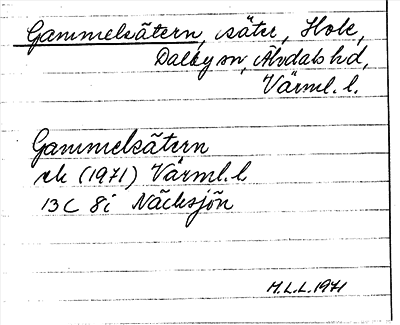 Gammelsätern, säter, Hole,
Dalby sn, Älvdals hd,
Värml. l.
Gammelsätern
ek (1971) Värml. l.
13C 8i Näcksjön
M.L.L. 1971